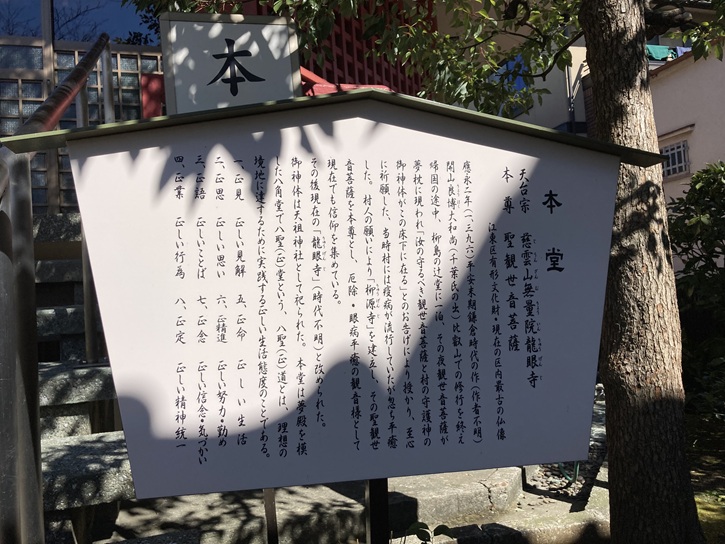 本
本堂
天台宗 慈雲山無量院龍眼寺
本尊 聖観世音菩薩
江東区有形文化財・現在の区内最古の仏像
應永二年(一三九六)年安末期鎌倉時代の作(作者不明)
開山良博大和尚(千葉氏の出)比叡山での修行を終え
帰国の途中、柳島の辻堂に一泊、その夜観世音菩薩が
夢枕に現われ「汝の守るべき観世音菩薩と村の守護神の
御神体がこの床下に在る」とのお告げにより授かり、至心
に祈願した、当時村には疫病が流行していたが忽ち平癒
した。村人の願いにより「柳源寺」を建立し、その聖観世
音菩薩を本尊とし、厄除・眼病平癒の観音様として
現在でも信仰を集めている。
その後現在の「龍眼寺」(時代不明)と改められた。
御神体は天祖神社として祀られた。本堂は夢殿を模
した八角堂で八聖(正)堂という、八聖(正)道とは、理想の
境地に達するために実践する正しい生活態度のことである。
一、正見 正しい見解 五、正命 正しい生活
二、正思 正しい思い 六、正精進 正しい努力・勤め
三、正語 正しいことば 七、正念 正しい信念・気づかい
四、正業 正しい行為 八、正定 正しい精神統一